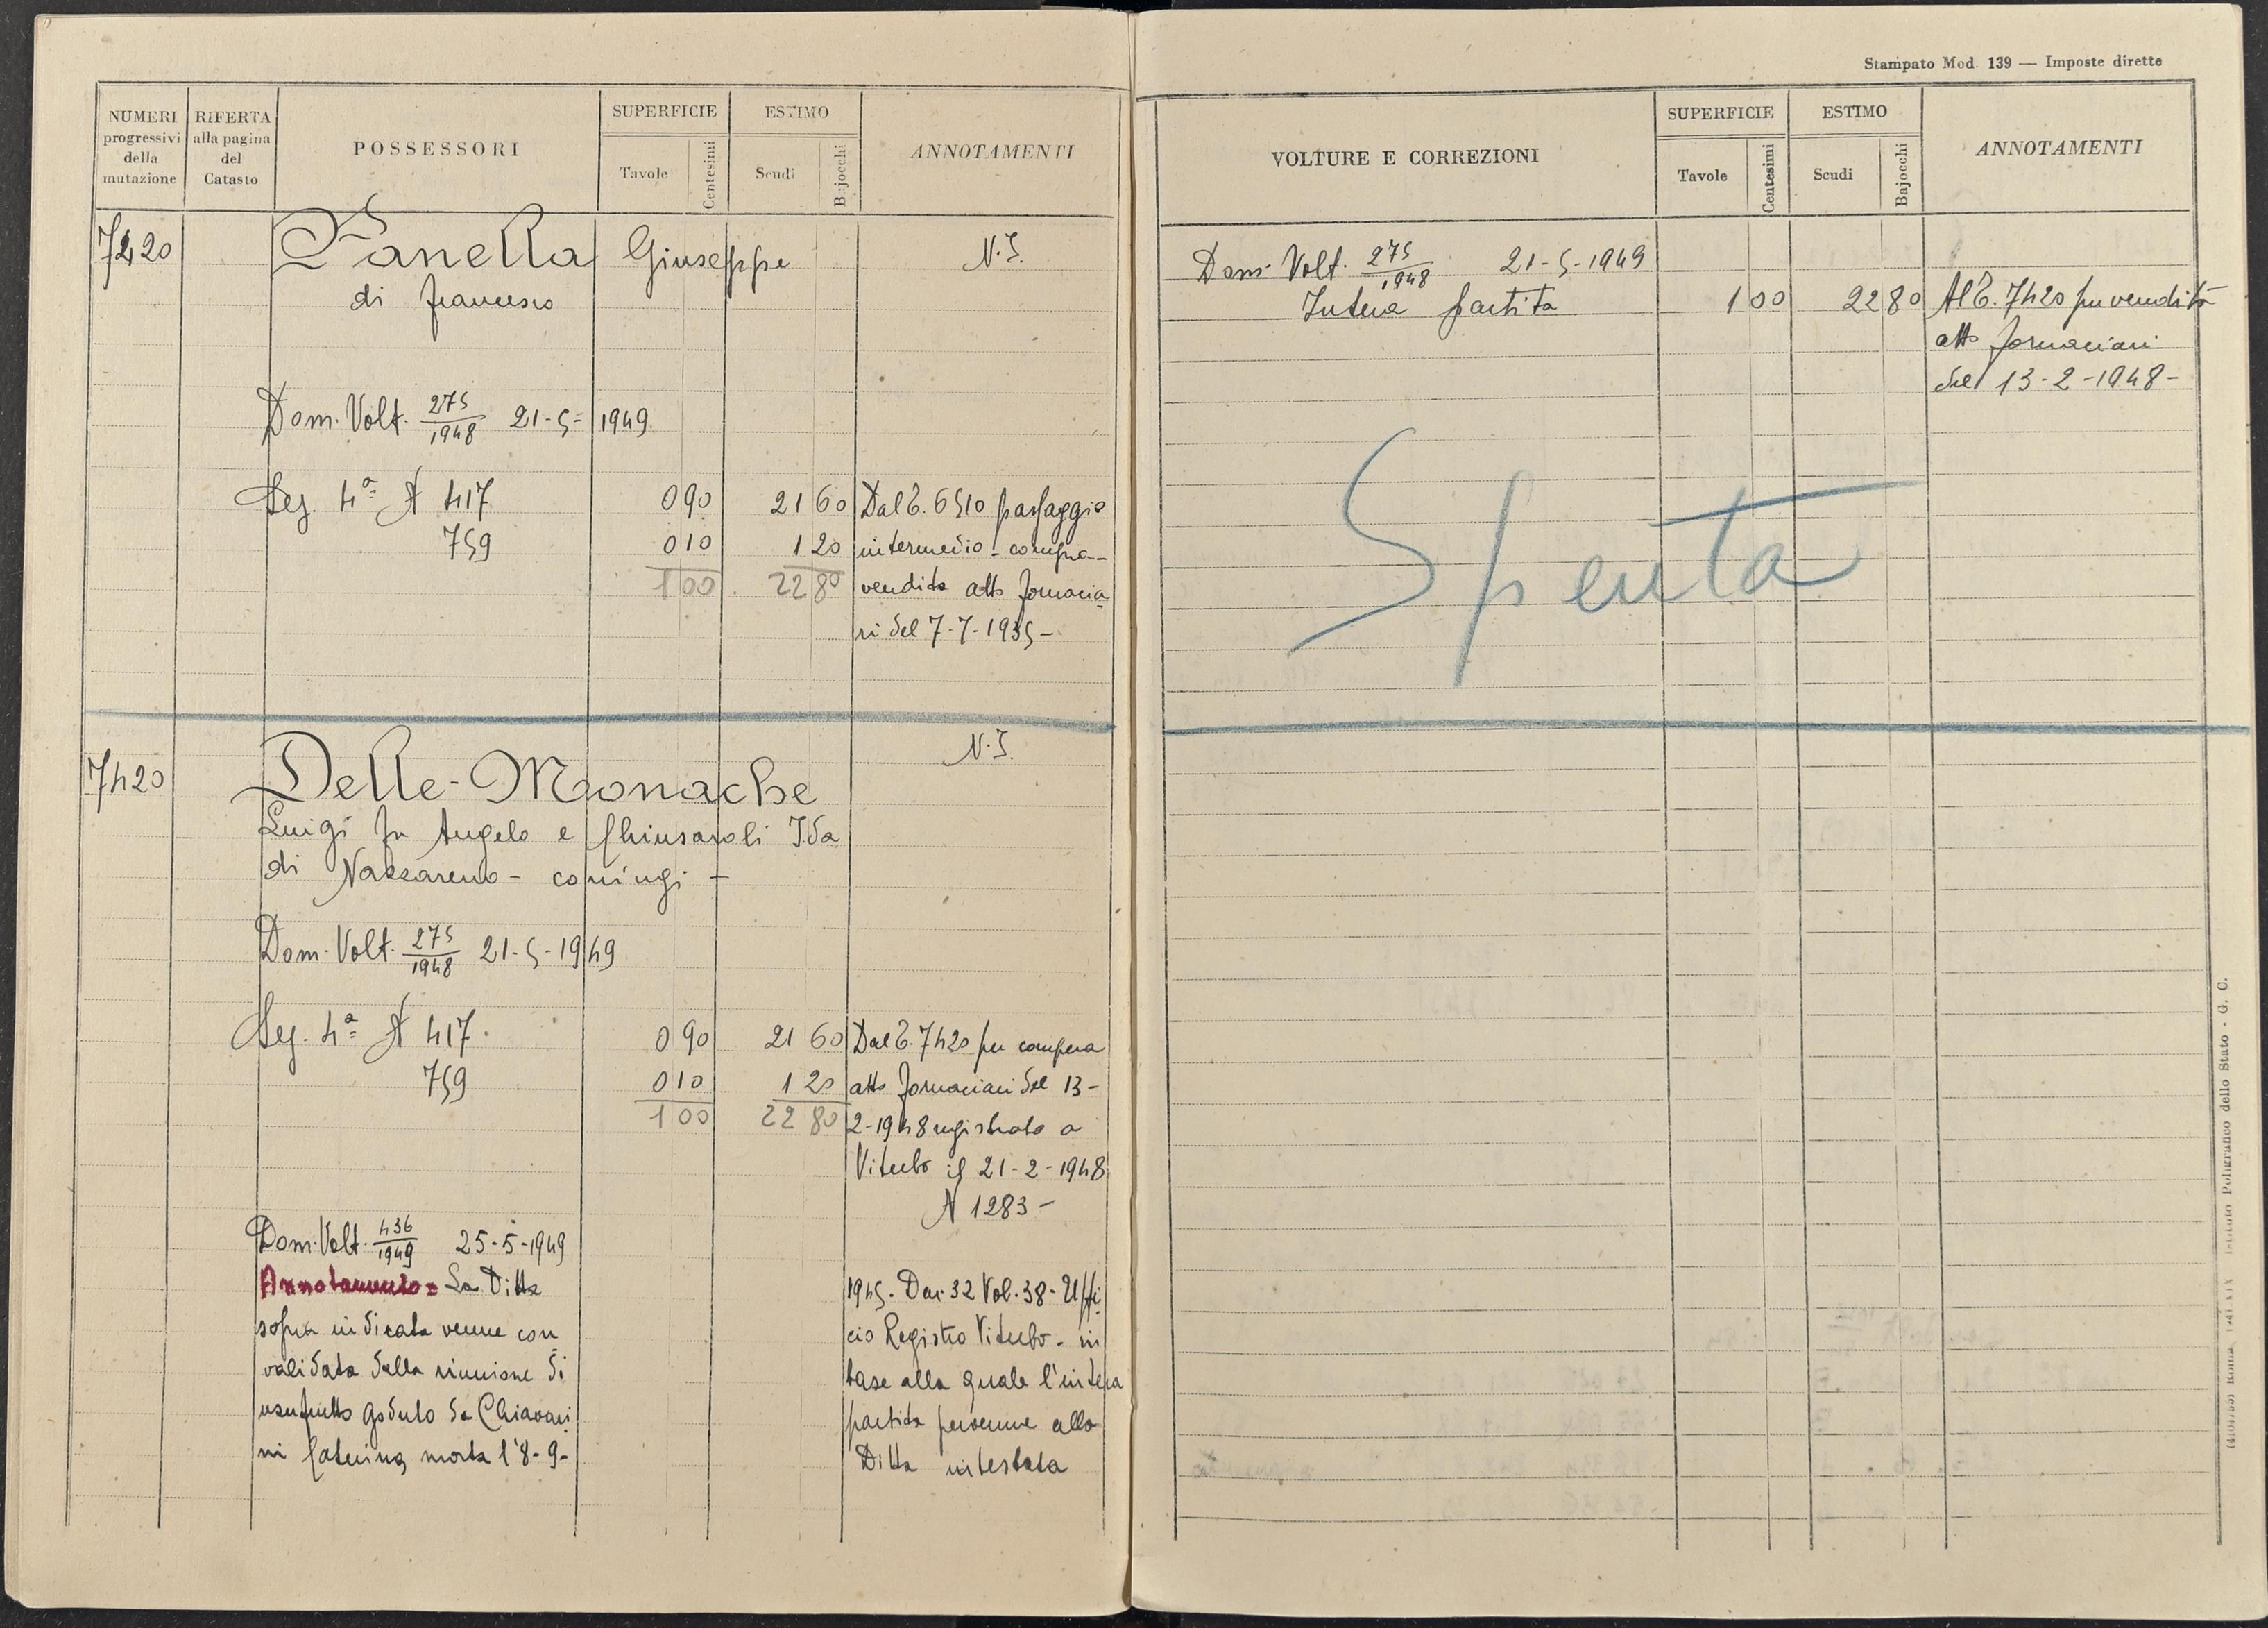 Stampato Mod. 139 — Imposte dirette
NUMERI progressivi della mutazione
RIFERTA alla pagina del Catasto
POSSESSORI
SUPERFICIE
Tavole
Centesimi
ESTIMO
Scudi
Bajocchi
ANNOTAMENTI
7420
Fanella Giuseppe
N.I.
di Francesco
Dom. Volt. 275/1948 21-5-1949
Sez. 4ª N 417 0 90 21 60 Dal C. 6510 passaggio
759 0 10 1 20 intermedio - compra-
1 00 22 80 vendita atto Fornacia
ri del 7-7-1935-
7420
N.I.
Delle-Monache
Luigi fu Angelo e Chiusaroli Ida
di Nazzareno - coniugi -
Dom. Volt. 275/1948 21-5-1949
Sez. 4ª N 417. 0 90 21 60 Dal C. 7420 per compera
759 0 10 1 20 atto Fornaciari del 13-
1 00 22 80 2-1948 registrato a
Viterbo il 21-2-1948
N 1283-
Dom. Volt. 436/1949 25-5-1949
Annotamento = La Ditta
sopra indicata venne con
validata dalla riunione di
usufrutto goduto da Chiavari
ni Caterina morta l'8-9-
1945. Den. 32 Vol. 38 - Uffi
cio Registro Viterbo - in
base alla quale l'intera
partita pervenne alla
Ditta intestata
VOLTURE E CORREZIONI
SUPERFICIE
Tavole
Centesimi
ESTIMO
Scudi
Bajocchi
ANNOTAMENTI
Dom. Volt. 275/1948 21-5-1949
Intera partita 1 00 22 80 Al C. 7420 per vendita
atto Fornaciari
del 13-2-1948-
Spenta
Istituto Poligrafico dello Stato - G. C.